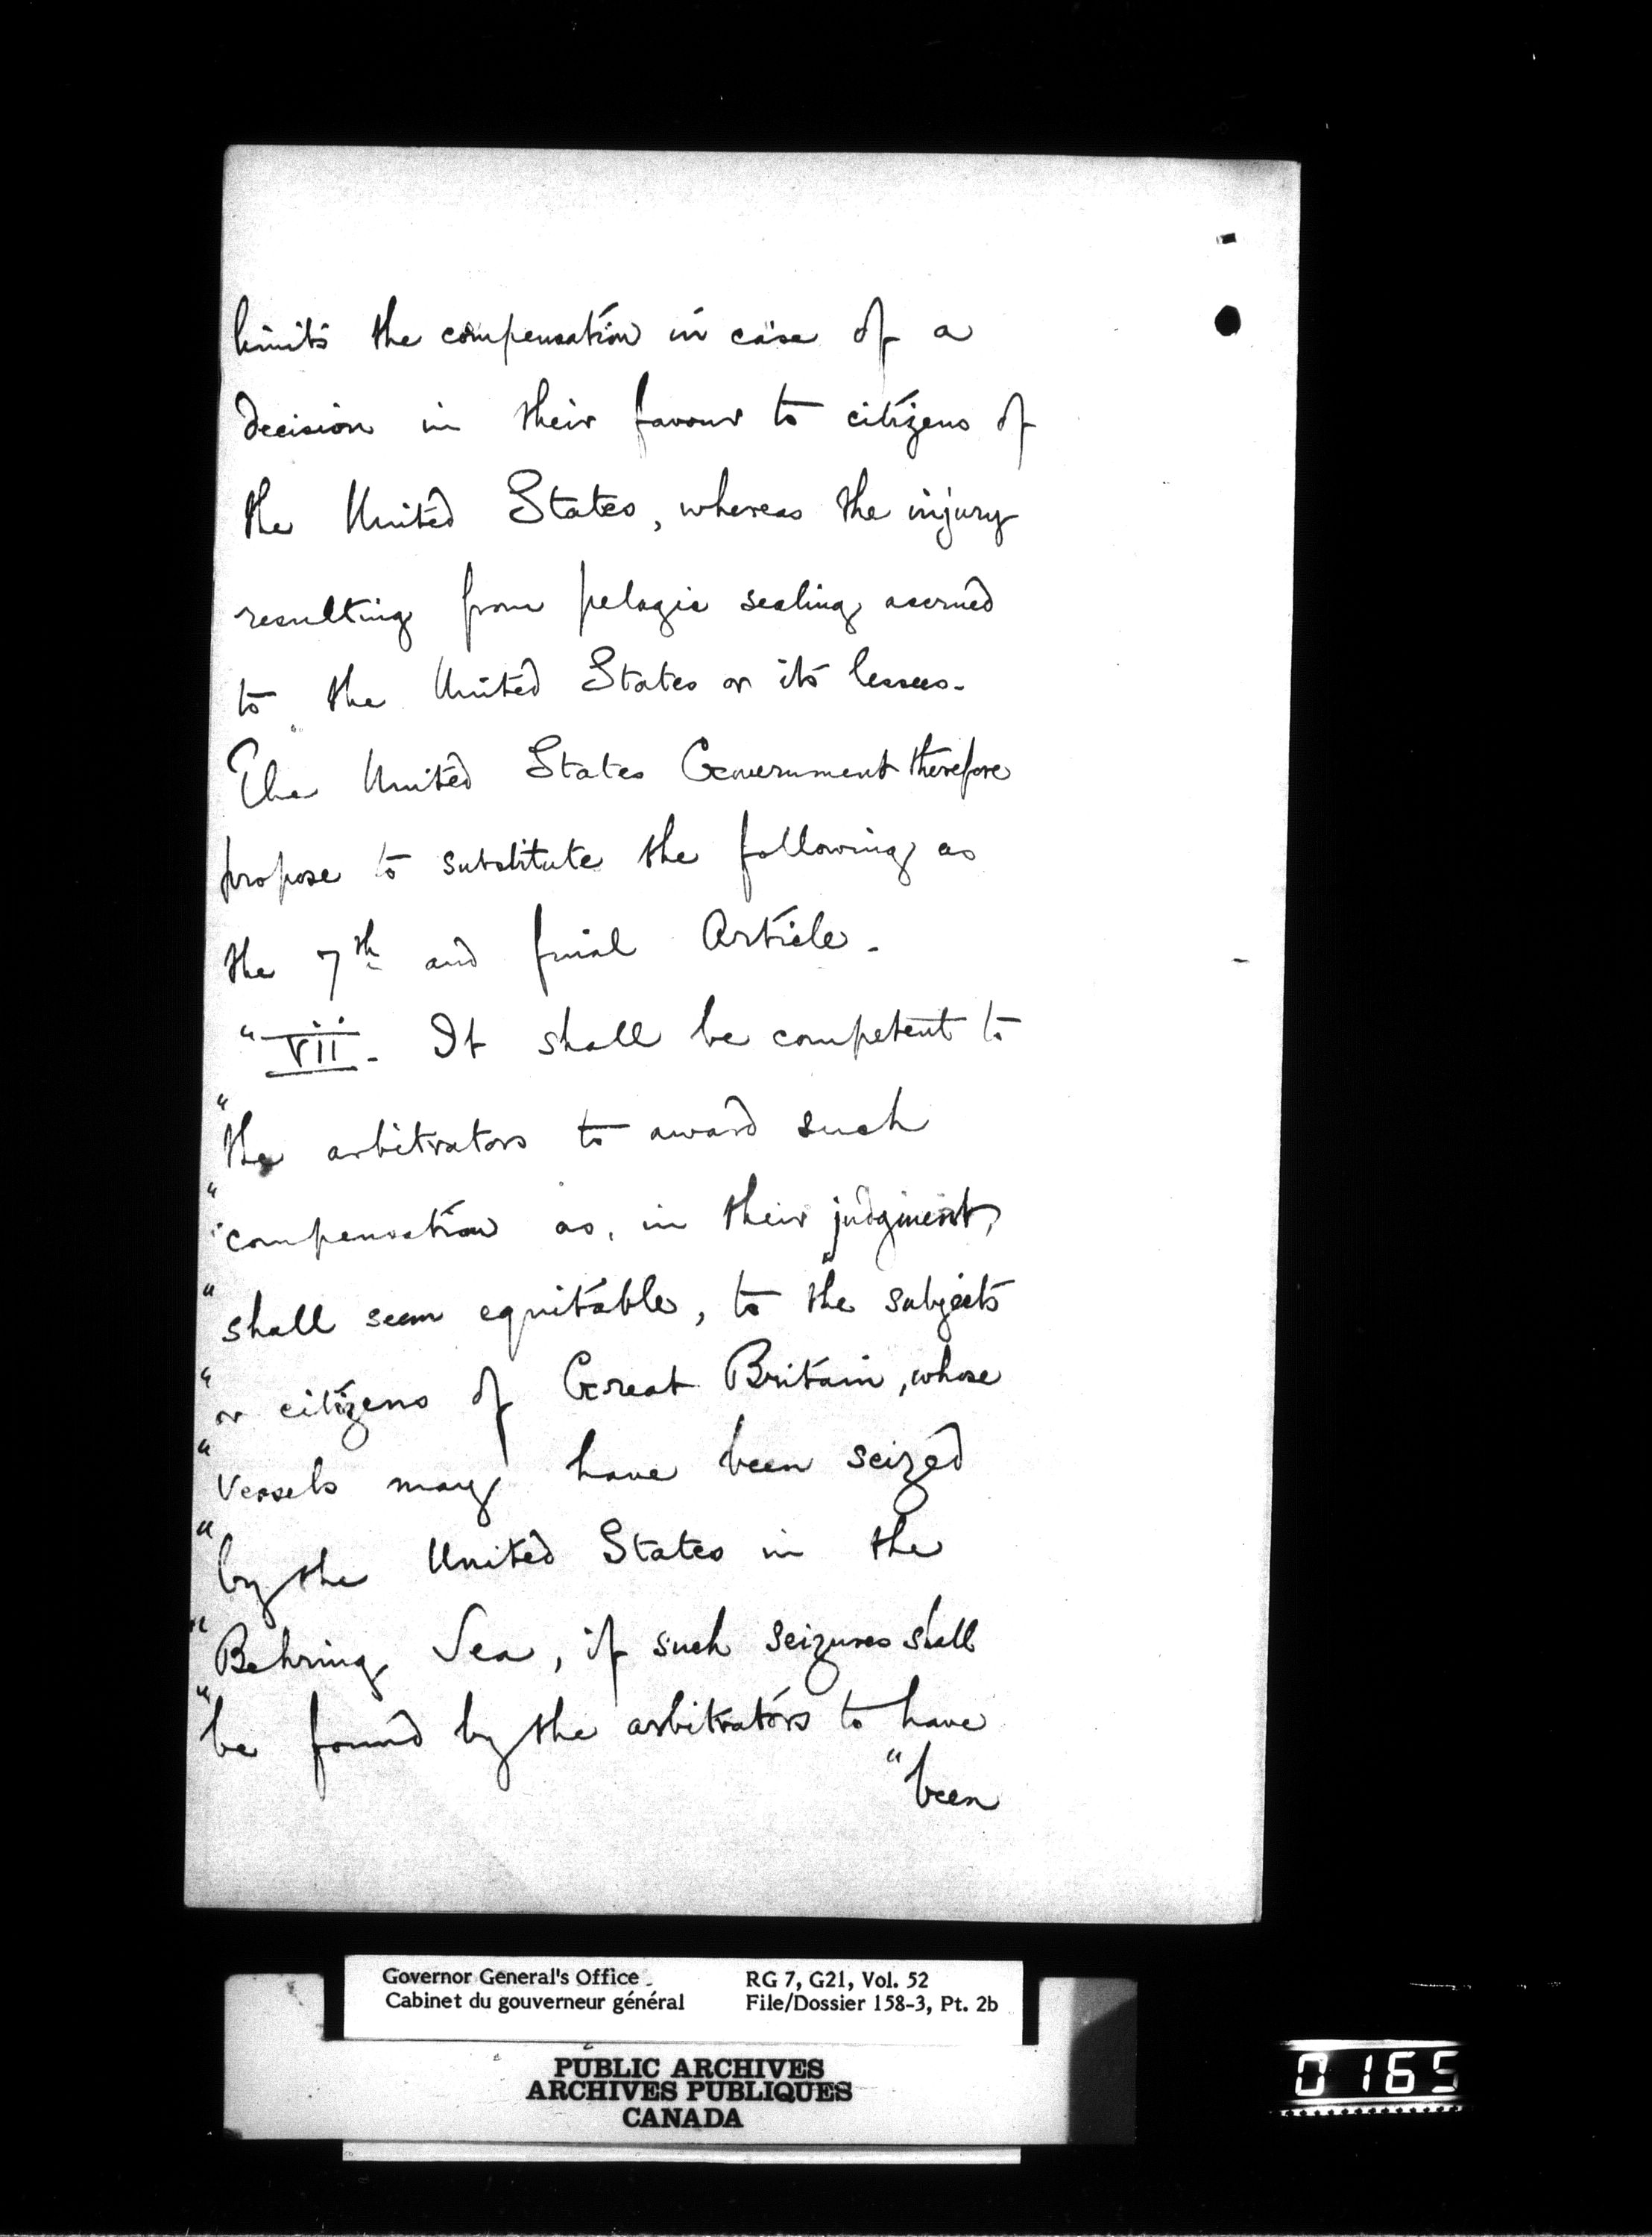 limits the compensation in case of a
decision in their favour to citizens of
the United States, whereas the injury
resulting from pelagic sealing accrued
to the United States or its lessees.
The United States Government therefore
propose to substitute the following as
the 7th and final Article.
"VII. It shall be competent to
"the arbitrators to award such
"compensation as, in their judgment,
"shall seem equitable, to the subjects
"or citizens of Great Britain, whose
"vessels may have been seized
"by the United States in the
"Behring Sea, if such seizures shall
"be found by the arbitrators to have
"been
Governor General's Office RG 7, G21, Vol. 52
Cabinet du gouverneur général File/Dossier 158-3, Pt. 2b
PUBLIC ARCHIVES
ARCHIVES PUBLIQUES
CANADA
0165